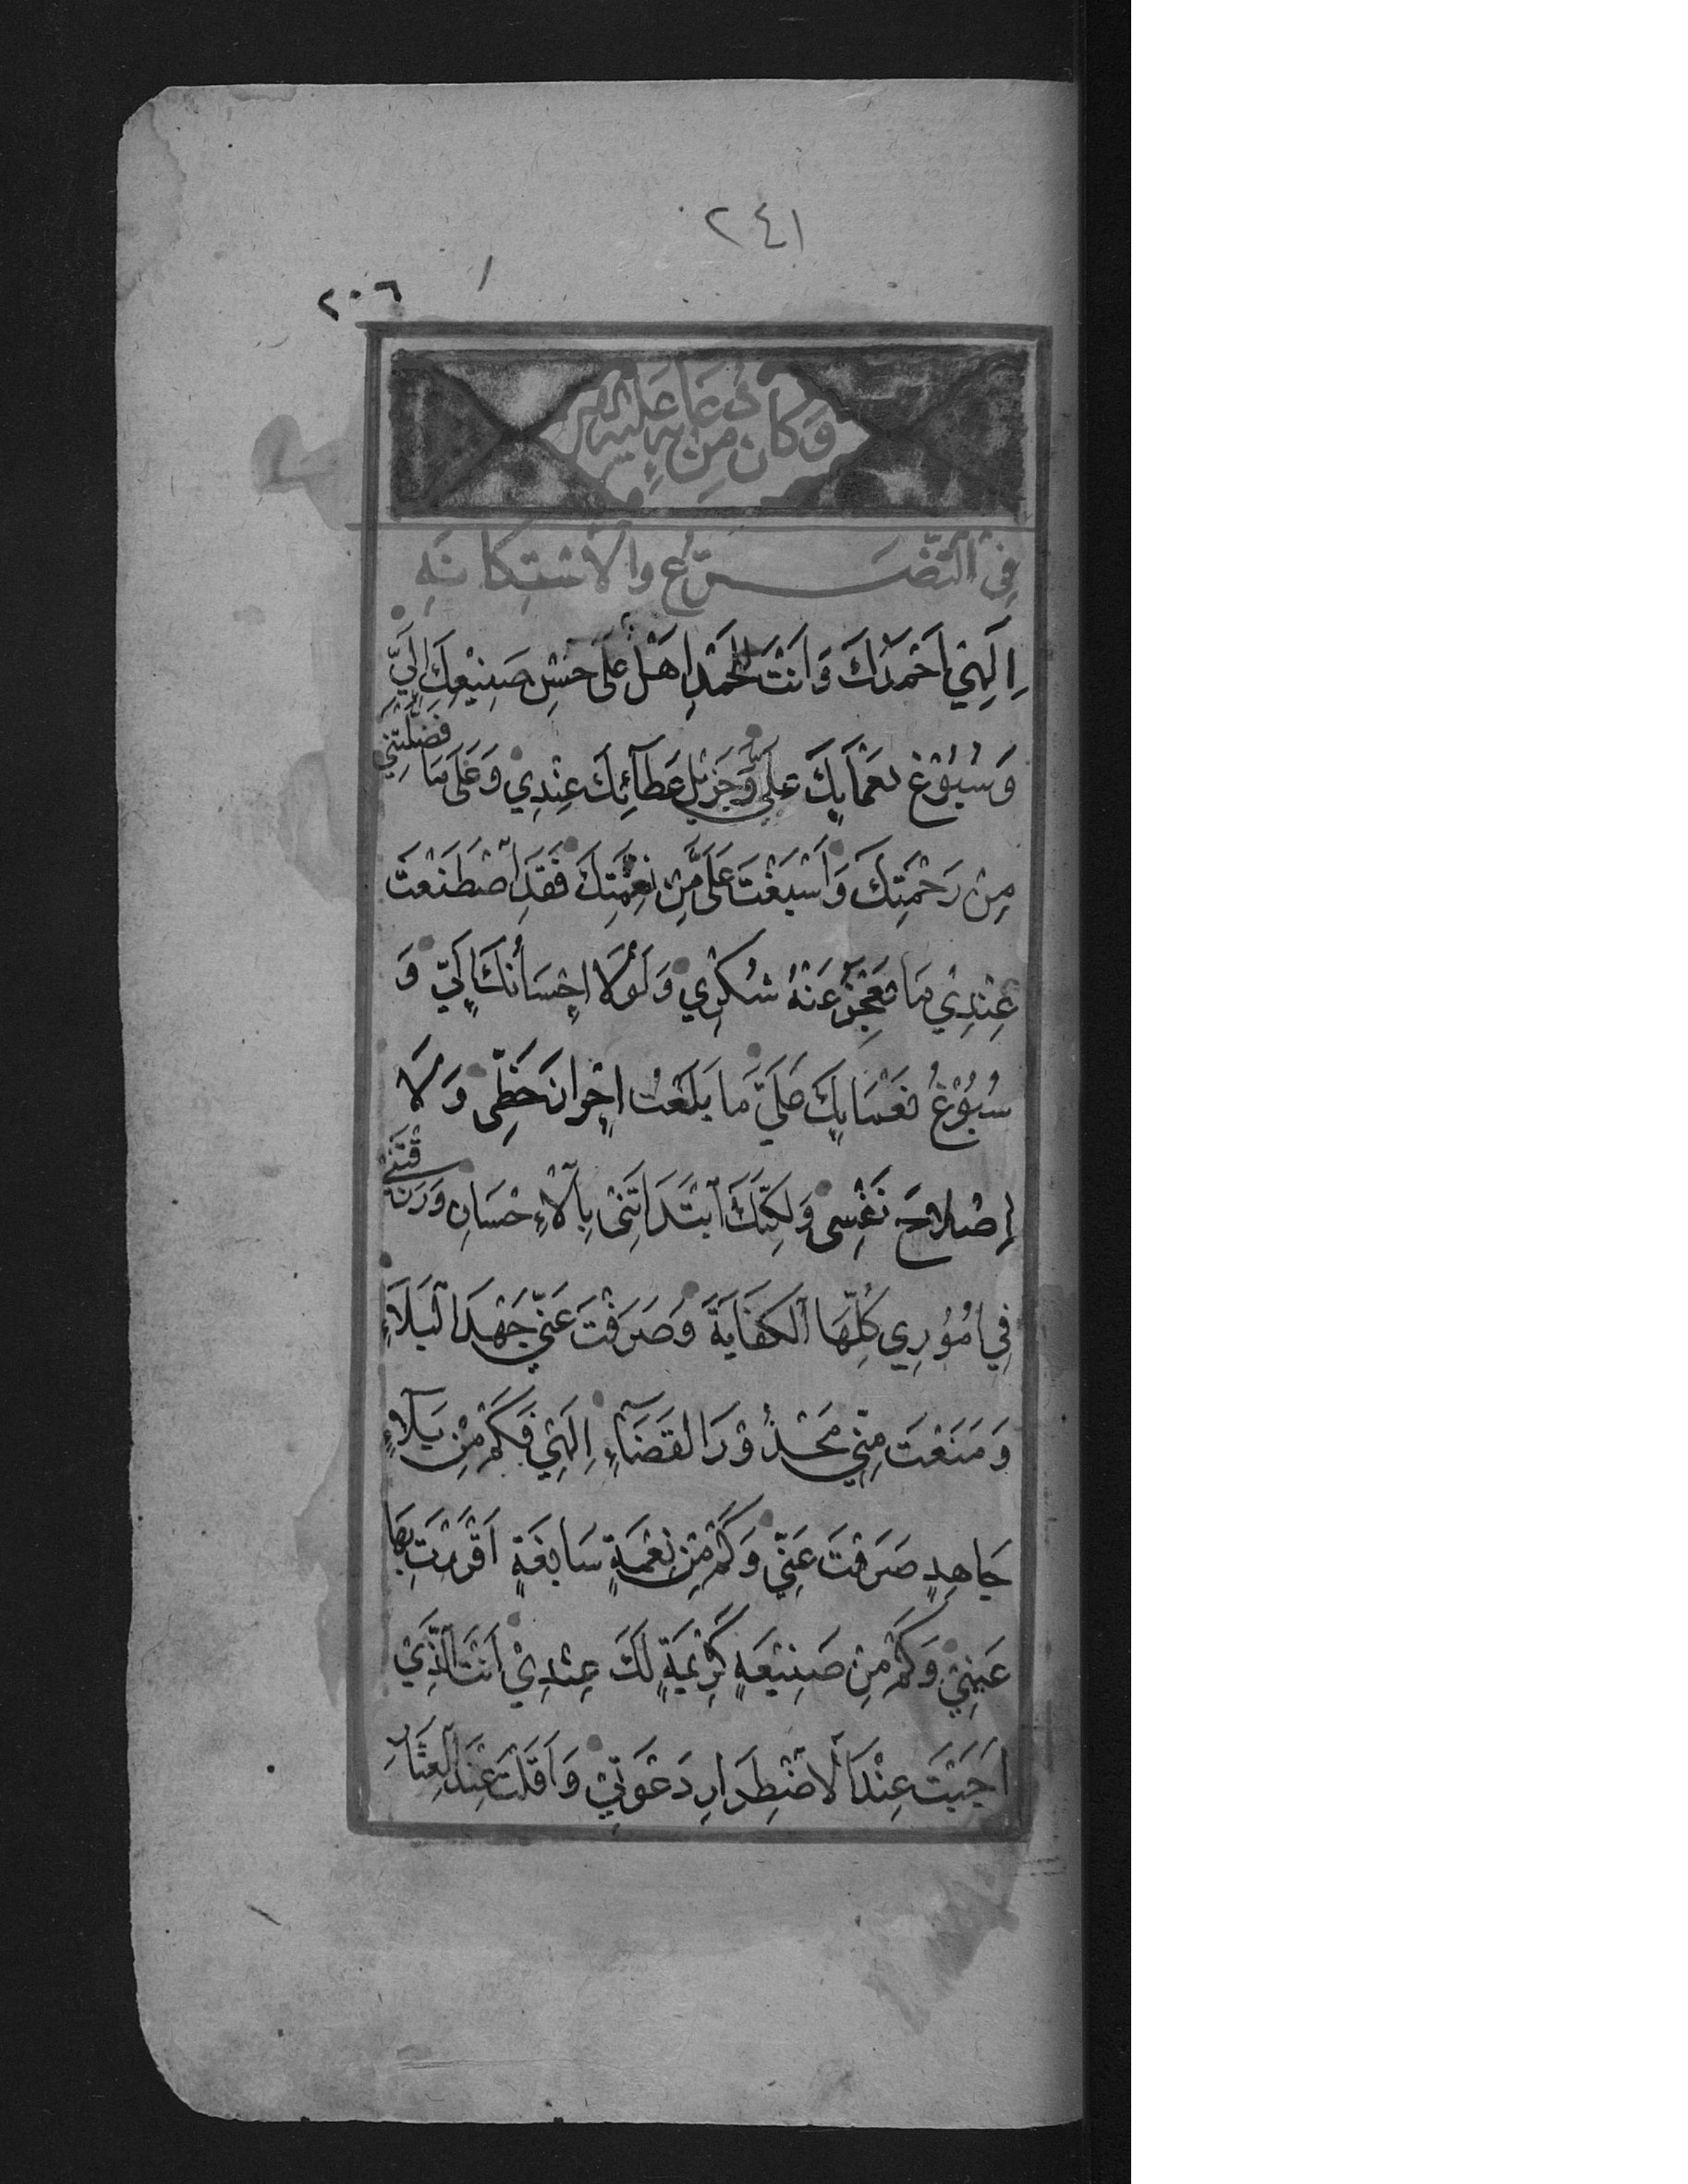 ٢٤١
٢٠٦
وَكَانَ مِن دُعَائِهِ عَلَيْهِ السَّلَم
فِي التَّضَرُّعِ وَالْاسْتِكَانَهِ
اِلٰهِي اَحْمَدُكَ وَاَنْتَ لِلْحَمْدِ اَهْلٌ عَلَى حُسْنِ صَنِيْعِكَ اِلَيَّ
وَسُبُوْغِ نَعْمَايِكَ عَلَيَّ وَجَزِيْلِ عَطَآئِكَ عِنْدِي وَعَلَى مَا فَضَّلْتَنِي
مِنْ رَحْمَتِكَ وَاَسْبَغْتَ عَلَيَّ مِنْ نِعْمَتِكَ فَقَدِ اصْطَنَعْتَ
عِنْدِي مَا تَعْجِزُ عَنْهُ شُكْرِي وَلَوْلَا اِحْسَانُكَ اِلَيَّ وَ
سُبُوْغُ نَعْمَايِكَ عَلَيَّ مَا بَلَغْتُ اِحْرَازَ حَظِّى وَلَا
اِصْلَاحَ نَفْسِى وَلٰكِنَّكَ ابْتَدَاتَنِى بِالْاِحْسَانِ وَرَزَقْتَنِي
فِي اُمُوْرِي كُلِّهَا الْكِفَايَةَ وَصَرَفْتَ عَنِّي جَهْدَ الْبَلَاءِ
وَمَنَعْتَ مِنِّي مَحْذُوْرَ الْقَضَآءِ اِلٰهِي فَكَمْ مِنْ بَلَآءٍ
جَاهِدٍ صَرَفْتَ عَنِّي وَكَمْ مِنْ نِعْمَةٍ سَابِغَةٍ اَقْرَرْتَ بِهَا
عَيْنِيْ وَكَمْ مِنْ صَنِيْعَةٍ كَرِيْمَةٍ لَكَ عِنْدِيْ اَنْتَ الَّذِيْ
اَجَبْتَ عِنْدَ الْاضْطِرَارِ دَعْوَتِيْ وَاَقَلْتَ عِنْدَ الْعِثَارِ